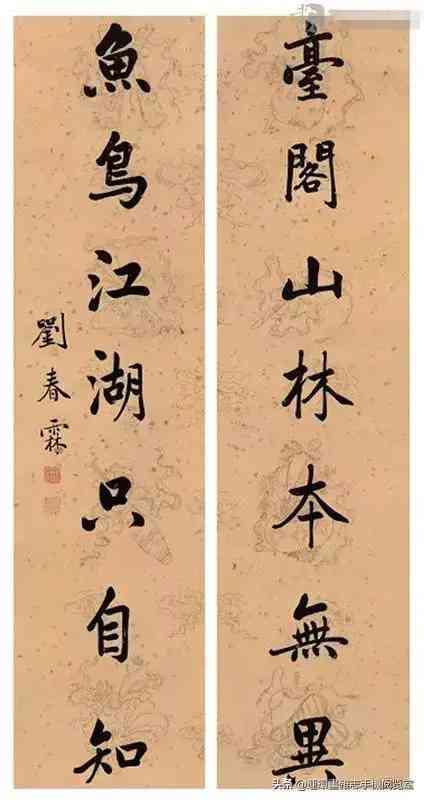 臺閣山林本無異
魚鳥江湖只自知
劉春霖
头条